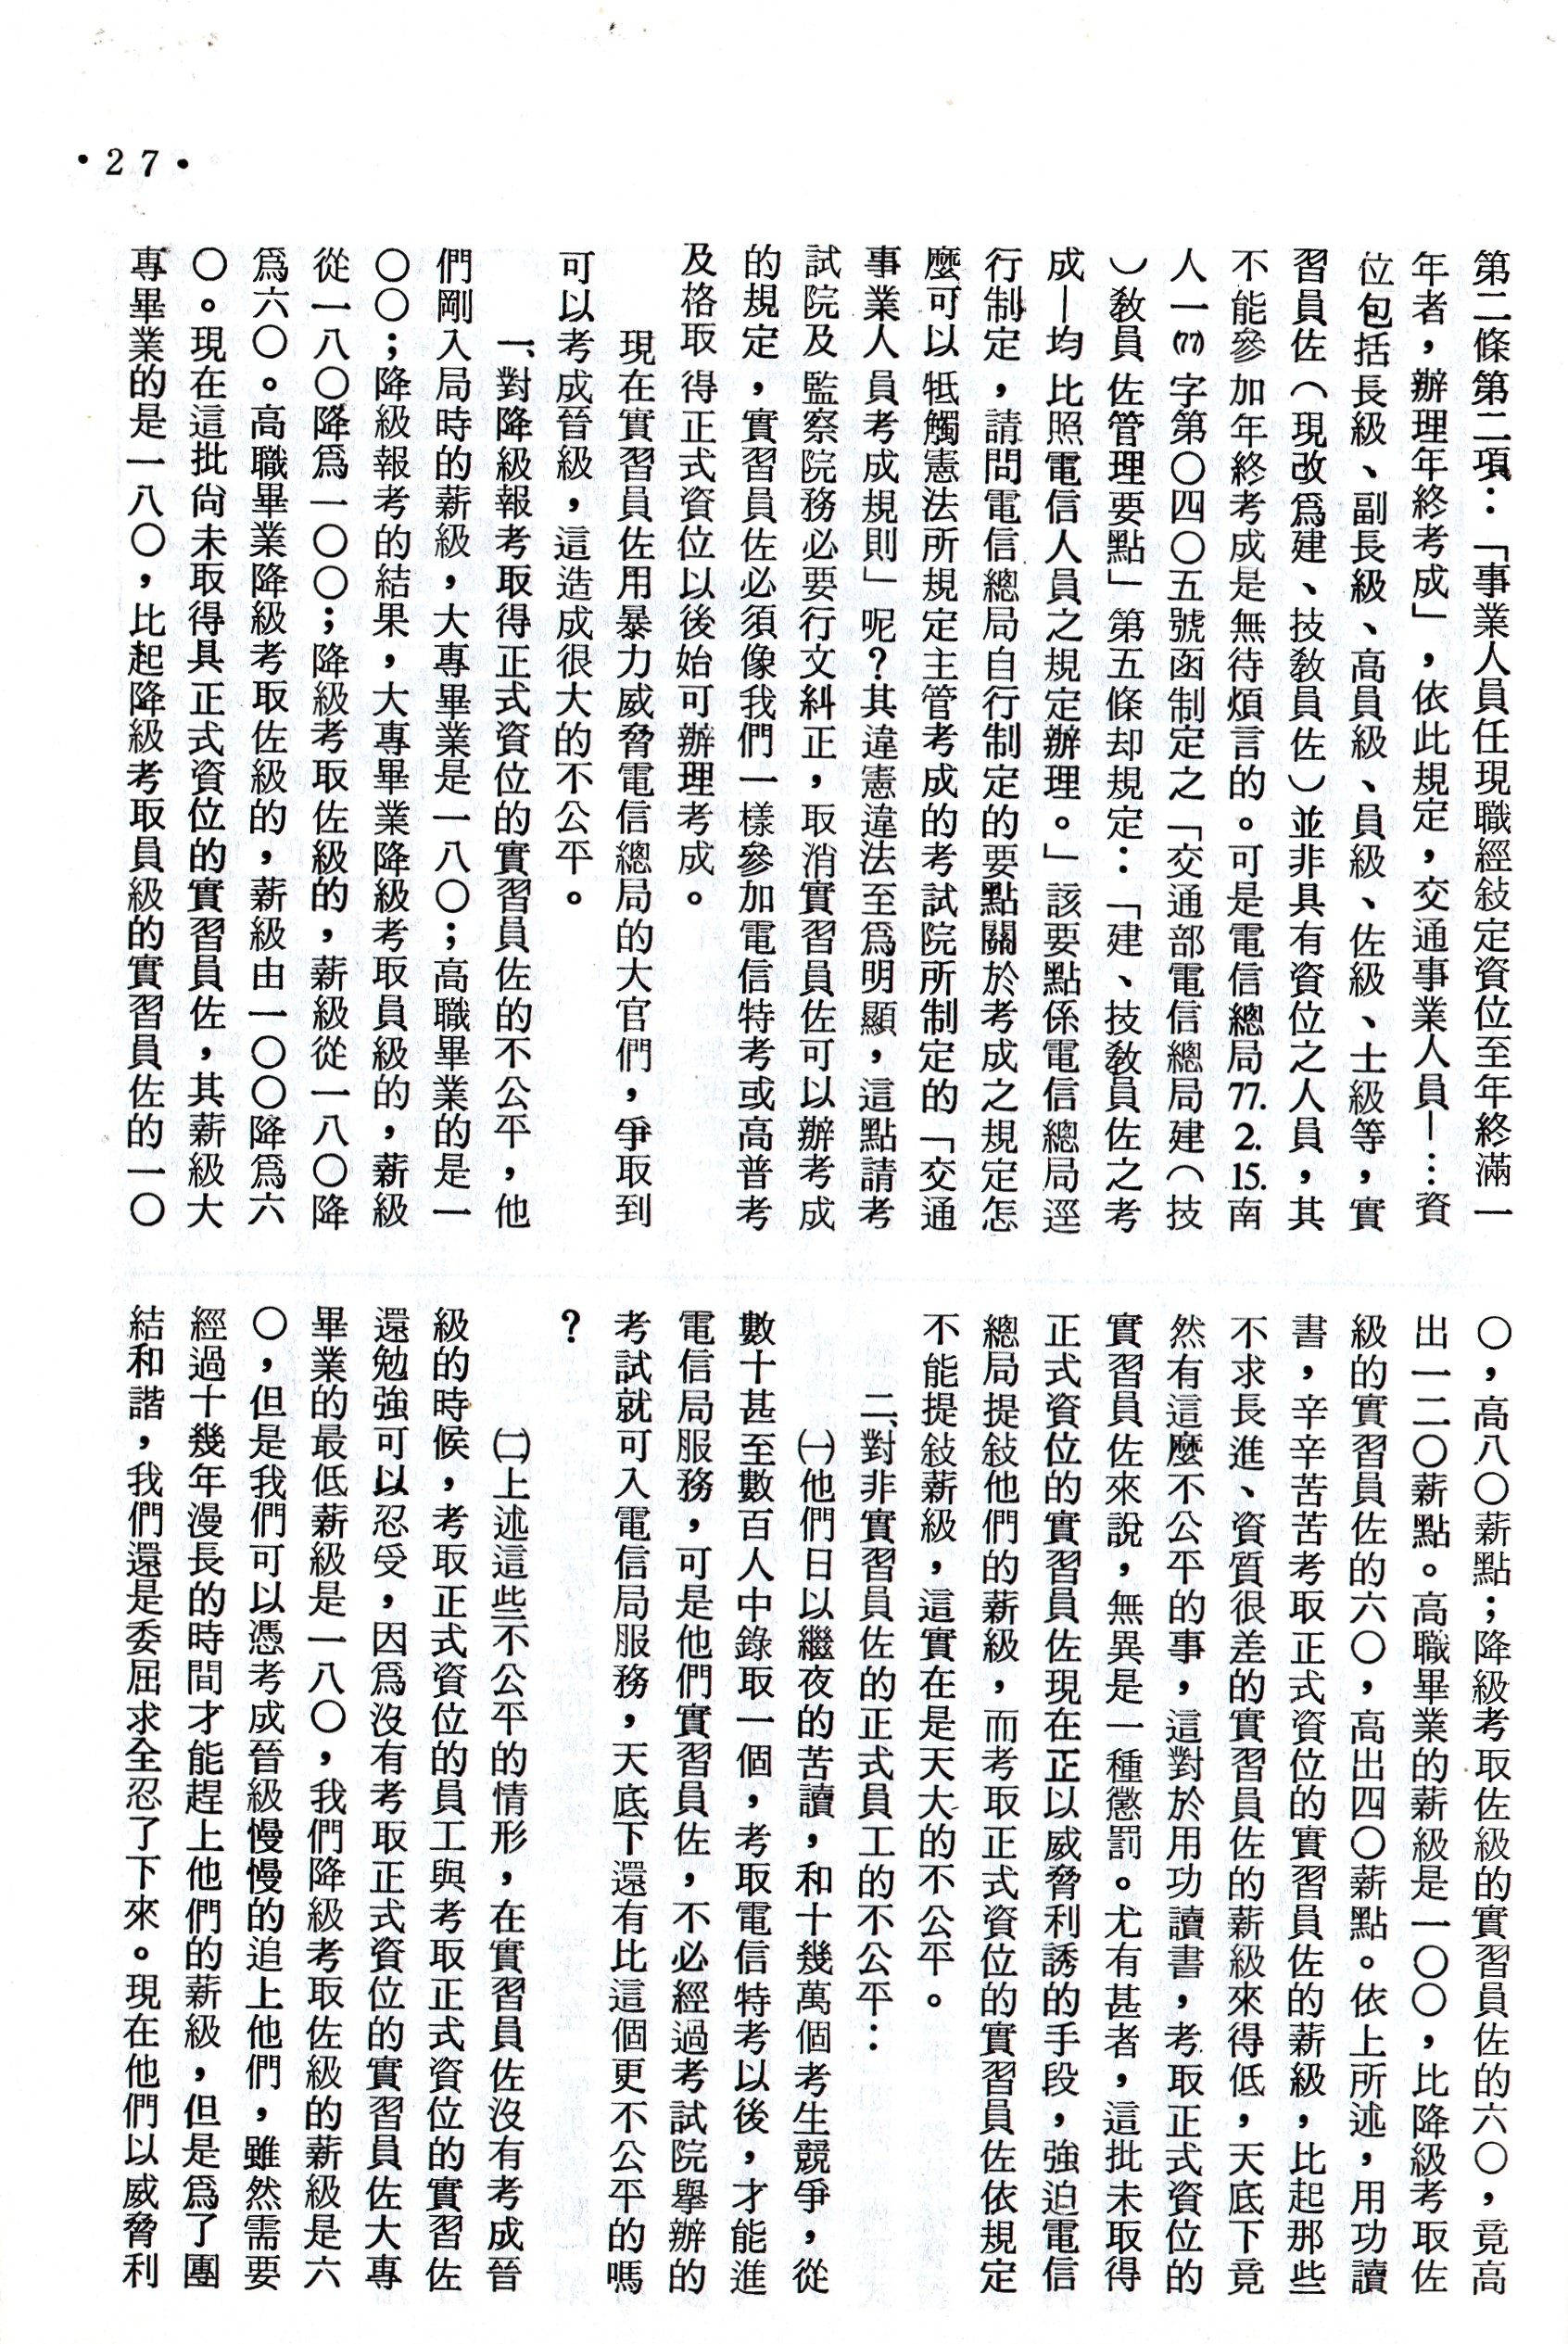 •27•
第二條第二項：「事業人員任現職經敍定資位至年終滿一
年者，辦理年終考成」，依此規定，交通事業人員—…資
位包括長級、副長級、高員級、員級、佐級、士級等，實
習員佐（現改爲建、技教員佐）並非具有資位之人員，其
不能參加年終考成是無待煩言的。可是電信總局77.2.15.南
人一(77)字第〇四〇五號函制定之「交通部電信總局建（技
）教員佐管理要點」第五條却規定：「建、技教員佐之考
成—均比照電信人員之規定辦理。」該要點係電信總局逕
行制定，請問電信總局自行制定的要點關於考成之規定怎
麼可以牴觸憲法所規定主管考成的考試院所制定的「交通
事業人員考成規則」呢？其違憲違法至爲明顯，這點請考
試院及監察院務必要行文糾正，取消實習員佐可以辦考成
的規定，實習員佐必須像我們一樣參加電信特考或高普考
及格取得正式資位以後始可辦理考成。
現在實習員佐用暴力威脅電信總局的大官們，爭取到
可以考成晉級，這造成很大的不公平。
一、對降級報考取得正式資位的實習員佐的不公平，他
們剛入局時的薪級，大專畢業是一八〇；高職畢業的是一
〇〇；降級報考的結果，大專畢業降級考取員級的，薪級
從一八〇降爲一〇〇；降級考取佐級的，薪級從一八〇降
爲六〇。高職畢業降級考取佐級的，薪級由一〇〇降爲六
〇。現在這批尙未取得具正式資位的實習員佐，其薪級大
專畢業的是一八〇，比起降級考取員級的實習員佐的一〇
〇，高八〇薪點；降級考取佐級的實習員佐的六〇，竟高
出一二〇薪點。高職畢業的薪級是一〇〇，比降級考取佐
級的實習員佐的六〇，高出四〇薪點。依上所述，用功讀
書，辛辛苦苦考取正式資位的實習員佐的薪級，比起那些
不求長進、資質很差的實習員佐的薪級來得低，天底下竟
然有這麼不公平的事，這對於用功讀書，考取正式資位的
實習員佐來說，無異是一種懲罰。尤有甚者，這批未取得
正式資位的實習員佐現在正以威脅利誘的手段，強迫電信
總局提敍他們的薪級，而考取正式資位的實習員佐依規定
不能提敍薪級，這實在是天大的不公平。
二、對非實習員佐的正式員工的不公平：
㈠他們日以繼夜的苦讀，和十幾萬個考生競爭，從
數十甚至數百人中錄取一個，考取電信特考以後，才能進
電信局服務，可是他們實習員佐，不必經過考試院舉辦的
考試就可入電信局服務，天底下還有比這個更不公平的嗎
？
㈡上述這些不公平的情形，在實習員佐沒有考成晉
級的時候，考取正式資位的員工與考取正式資位的實習佐
還勉強可以忍受，因爲沒有考取正式資位的實習員佐大專
畢業的最低薪級是一八〇，我們降級考取佐級的薪級是六
〇，但是我們可以憑考成晉級慢慢的追上他們，雖然需要
經過十幾年漫長的時間才能趕上他們的薪級，但是爲了團
結和諧，我們還是委屈求全忍了下來。現在他們以威脅利